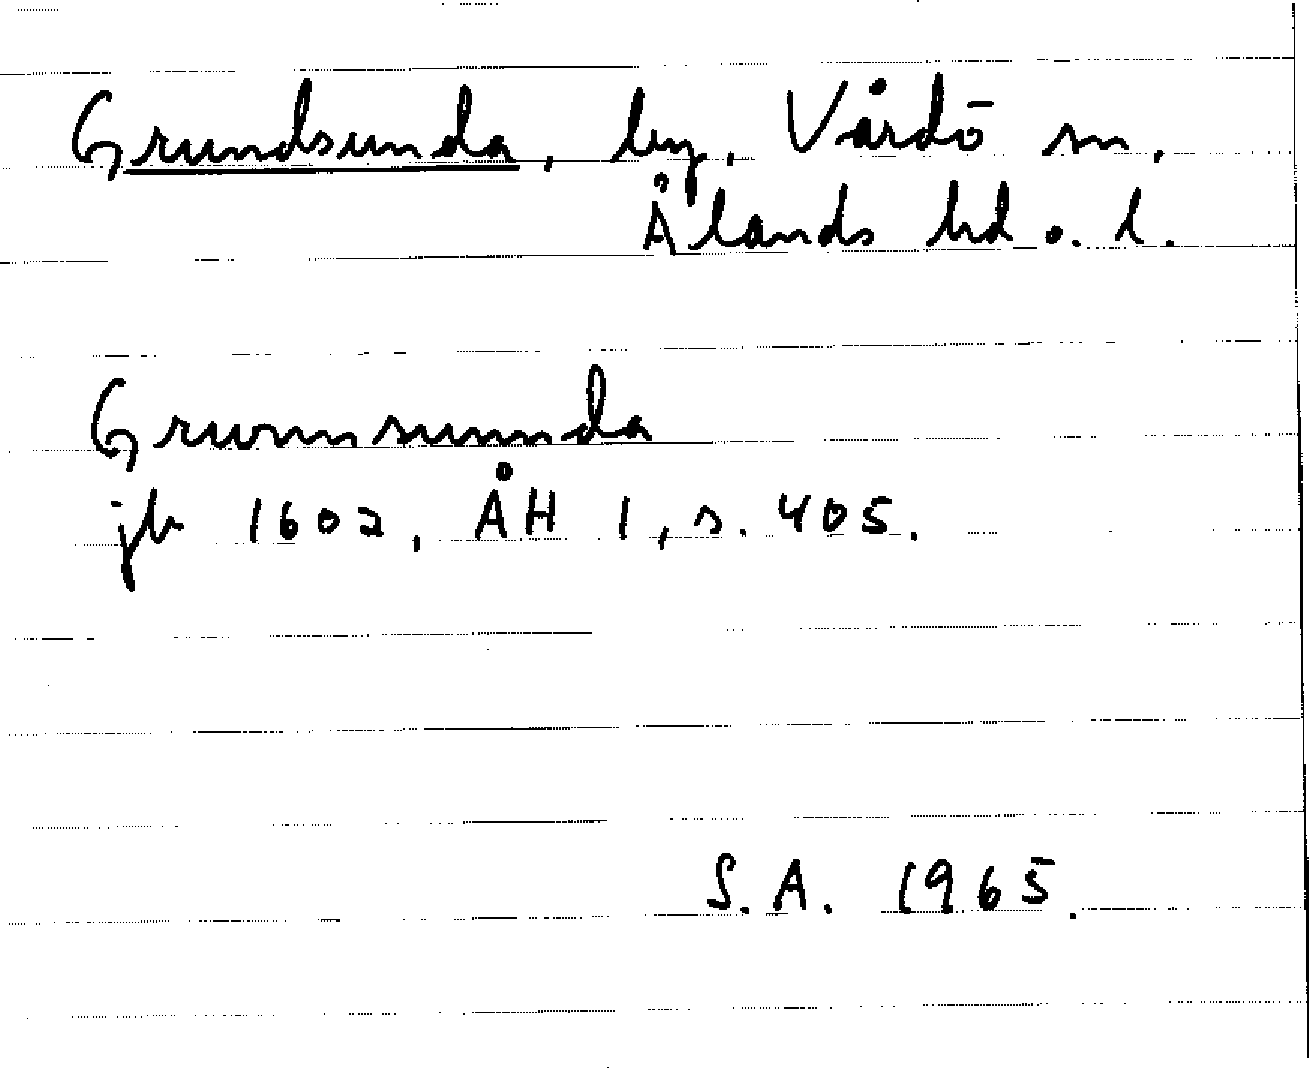 Grundsunda, by, Vårdö sn,
Ålands hd o. l.
Grwnnsunnda
jb 1602, ÅH 1, s. 405.
S.A. 1965.